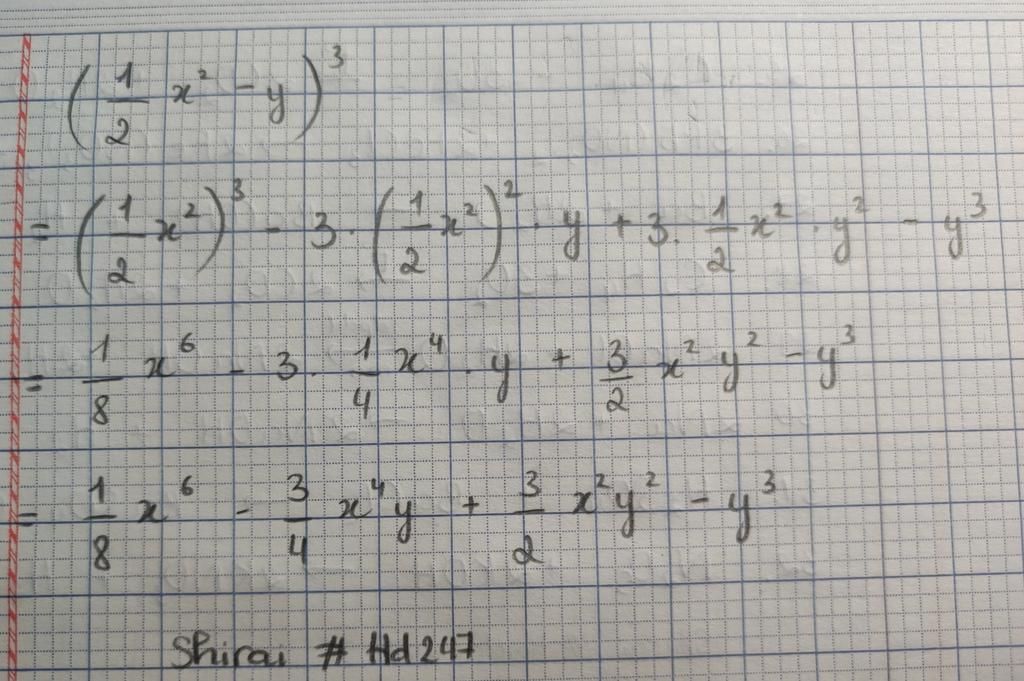 (1/2 x² - y)³
= (1/2 x²)³ - 3 · (1/2 x²)² · y + 3 · 1/2 x² · y² - y³
= 1/8 x⁶ - 3 · 1/4 x⁴ · y + 3/2 x² y² - y³
= 1/8 x⁶ - 3/4 x⁴y + 3/2 x²y² - y³
Shirai # Hd247